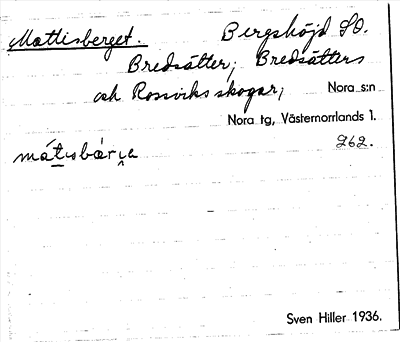 Mattisberget. Bergshöjd SO.
Bredsätter, Bredsätters
och Rossviks skogar, Nora s:n
Nora tg, Västernorrlands l.
262.
Sven Hiller 1936.